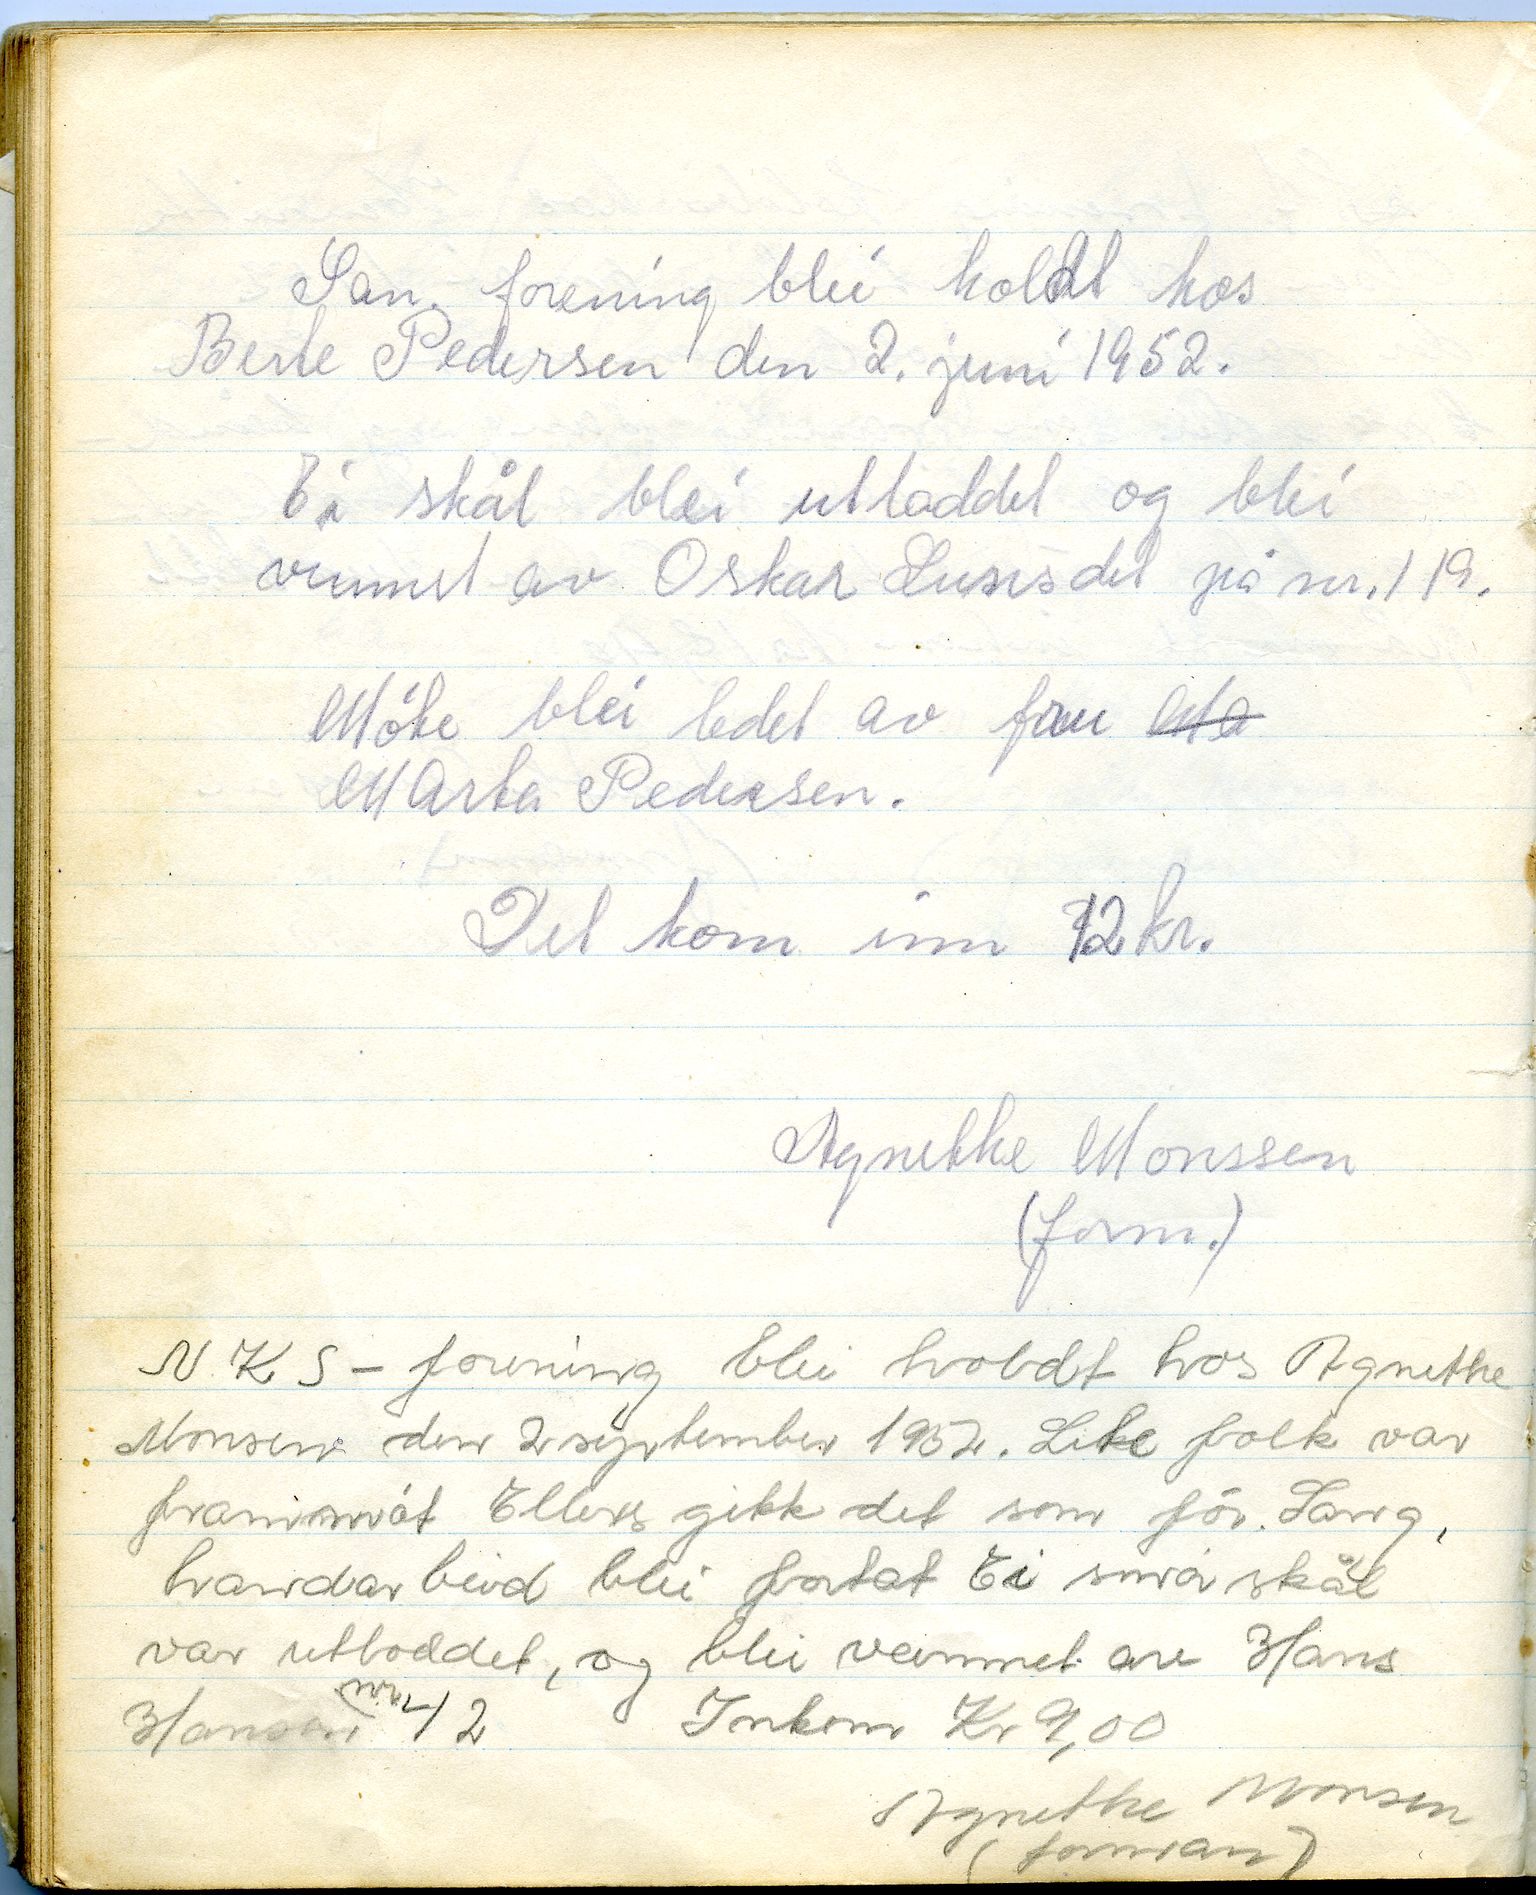 San. forening blei holdt hos
Berle Pedersen den 2. juni 1952.
Ei skål blei utloddet og blei
vunnet av Oskar på nr. 119.
Möte blei ledet av frau
Marta Pedersen.
Det kom inn 12 kr.
Agnethe Monssen
(form.)
N. K. S - forening blei hvoldt hos Agnethe
Monsen den 2 september 1952. Like folk var
frammöt Ellers gikk det som för. Lang,
handarbeid blei fortat Ei små skål
var utloddet, og blei vunnet av Hans
Hansen nr 42 Inkom Kr 9,00
Agnethe Monsen
(forman)